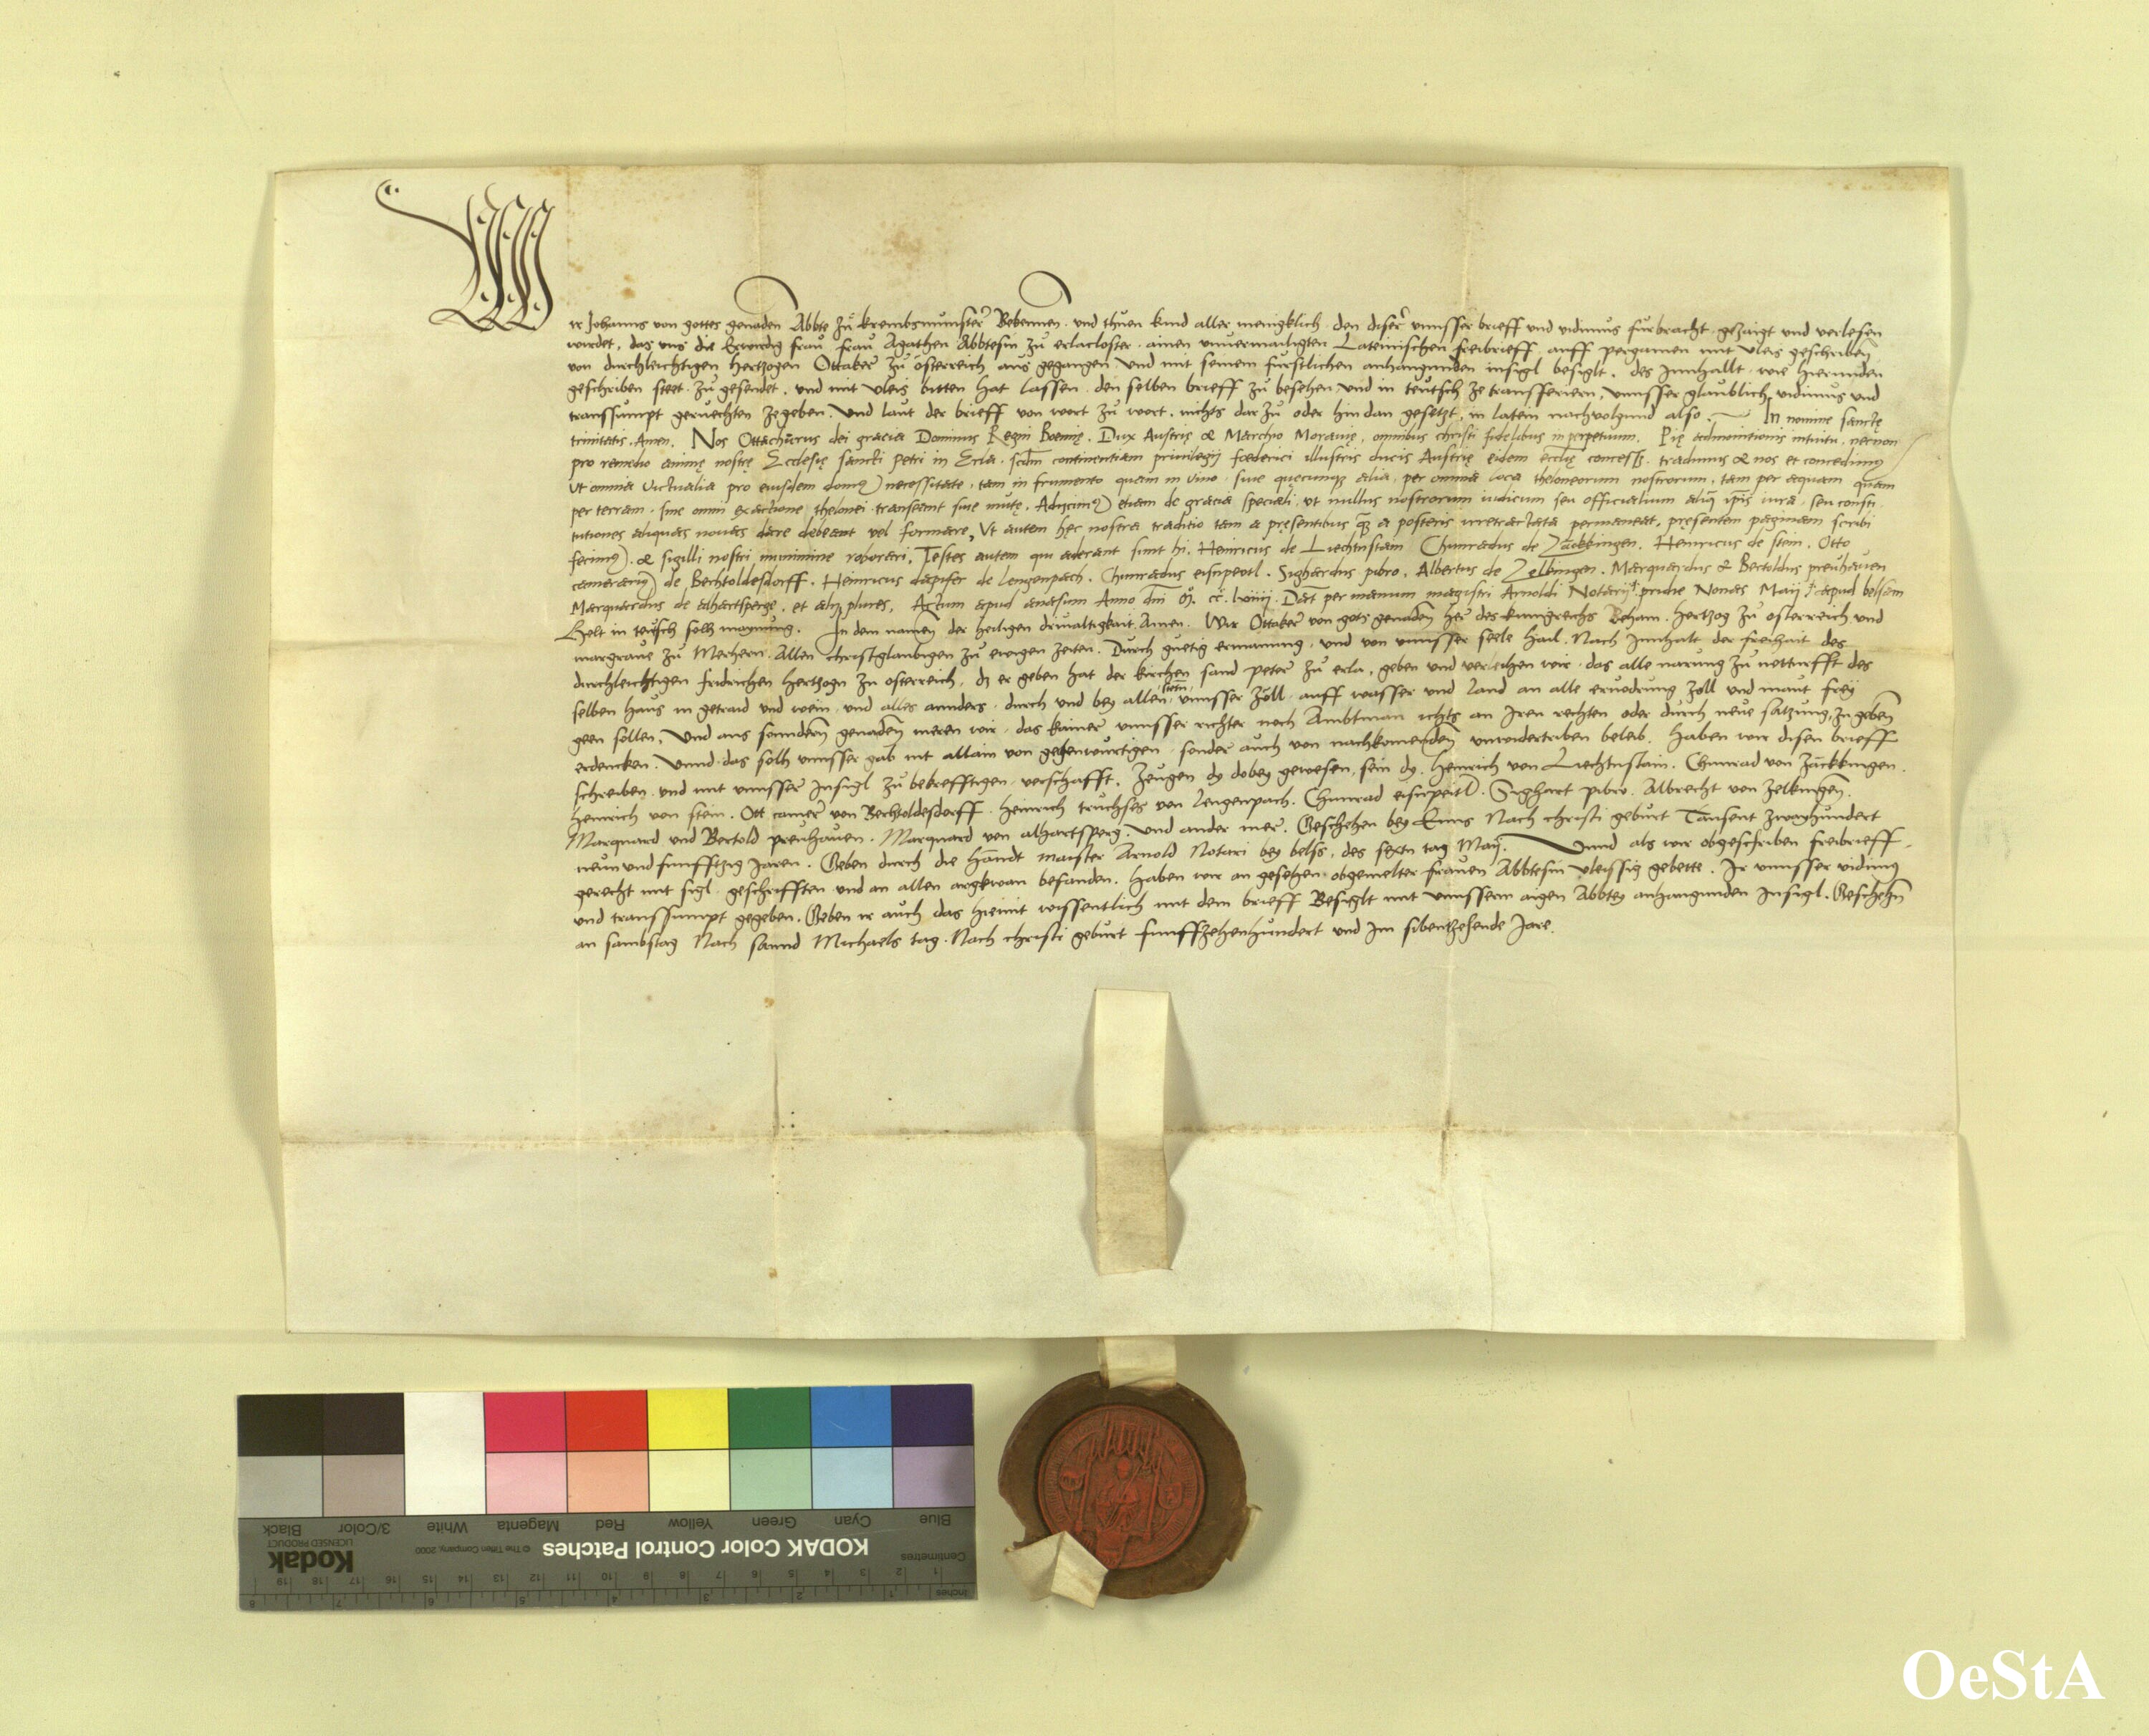 Wir Johanns von gottes genaden Abbte zů krembsmünster Bekennen. und thuen kund aller menigklich. den diser unnsser brieff und vidimus fürbracht. gezaigt und verlesen
wirdet, das uns die Erwirdig frau frau Agathen Abbtesin zu erlacloster. ainen unvermailigten Lateinischen freibrieff auff pergamen mit vleis geschriben
von durchleichtigen hertzogen Ottaker zu österreich aus gegangen und mit seinem fürstlichen anhangunden insigl besiglt. des Innhallt. wie hierunden
geschriben steet. zu gesendet. und mit vleis bitten hat lassen. den selben brieff zu besehen und in teutsch ze transferiern, unnsser glaublich vidimus und
transsumpt geruechten zegeben. Und laut der brieff von wort zu wort. nichts dar zu oder hin dan gesetzt, in latein nachvolgund also. In nomine sanctę
trinitatis. Amen. Nos Ottachěrus dei gracia Dominus Regni Boemię. Dux Austrię & Marchio Moravię, omnibus christi fidelibus in perpetuum. Pię admonitionis intuitu. necnon
pro remedio animę nostrę Ecclesię sancti petri in Erla. scdm continentiam privilegij fæderici illustris ducis Austrię eidem eccłię concessi. tradimus & nos et concedimus
Ut omnia victualia pro eiusdem domus necessitate. tam in frumento quam in vino. sive quęcunque alia. per omnia loca theloneorum nostrorum. tam per aquam quam
per terram. sine omni exactione thelonei. transeant sine mutę. Adijcimus etiam de gracia speciali. ut nullus nostrorum iudicum seu officialium aliq ipis iura. seu consti
tutiones aliquas novas dare debeant vel formare, Ut autem hęc nostra traditio tam a pręsentibus quam a posteris irretractata permaneat. pręsentem paginam scribi
fecimus. & sigilli nostri munimine roborari, Testes autem qui aderant sunt hi. Heinricus de Liechtnstain Chunradus de Zäckkingen. Heinricus de stein. Otto
camerarius de Bechtoldesdorff. Heinricus dapifer de Lengenpach. Chunradus eisnpeutl. Sighardus pibro, Albertus de Zelkingen. Marquardus & Bertoldus preuhaven
Marquardus de alhartsperge. et alij plures, Actum apud anasum Anno dm M. cc. lviiij. Dat per manum magistri Arnoldi Notarij pridie Nonas Maij apud belsem
Helt in teutsch solh maynung. In dem namen der heiligen drivaltigkait Amen. Wir Ottaker von gots genaden her des kunigrechs Beham. hertzog zu osterreich und
margrave zu Merhern. Allen christglaubigen zu ewigen zeiten. Durch guetig ermanung. und von unnsser seele hail. Nach Innhalt der freihait des
durchleichtigen fridrichen hertzogen zu osterreich. dz er geben hat der kirchen sand peter zu erla, geben und verleihen wir. das alle narung zu notturfft des
selben haus in getraid und wein. und alles annders. durch und bey allen unnsser zöll. auff wasser und land an alle ervodrung zoll und maut frey
geen sollen, Und aus sonndern genaden meren wir. das kainer unnsser richter noch Ambtman ichts an Iren rechten oder durch neue satzung, zu geben
erdencken. Unnd das solh unnsser gab nit allain von gegenwurtigen. sonder auch von nachkomenden unwidertriben beleib. haben wir disen brieff
schreiben. und mit unnsser Insigl zu bekrefftigen verschafft. Zeugen dy dobey gewesen, sein dy. heinrich von Liechtnstain. Chunrad von Zäckkingen.
heinrich von stein. Ott camer von Berchtoldesdorff. heinrich truchses von Lengenpach. Chunrad eisnpeitl. Sighart pibro. Albrecht von Zelkingen.
Marquard und Bertold preuhauen. Marquard von alhartsperg. Und ander mer. Geschehen bey Enns Nach christi geburt Tausent zwayhundert
neun und funfftzig Jaren. Geben durch die handt maister Arnold Notari bey belss, des sextn tag Maij. Unnd als wir obgeschriben freibrieff.
gerecht mit sigl. geschrifften und an allen argkwan befunden. haben wir an gesehen obgemelter frauen Abbtesin vleissig gebette. Ir unnsser vidimus
und transsumpt gegeben. Geben ir auch das hiemit wissentlich mit dem brieff Besiglt mit unnserm aigen Abbtey anhangunden Insigl. Geschehn
an sambstag Nach sannd Michaels tag. Nach christi geburt funffzehenhundert und im sibentzehende Jare.
Black 3/Color White Magenta Red Yellow Green Cyan Blue
Kodak LICENSED PRODUCT © The Tiffen Company, 2000 KODAK Color Control Patches Centimetres
19 18 17 16 15 14 13 12 11 10 9 8 7 6 5 4 3 2 1
8 7 6 5 4 3 2 1 Inches
OeStA